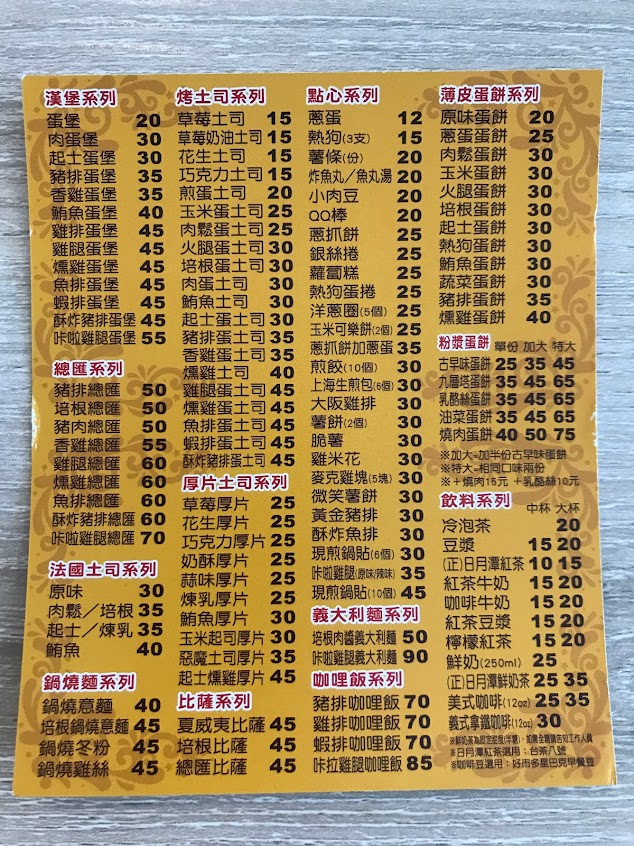 漢堡系列
蛋堡 20
肉蛋堡 30
起士蛋堡 30
豬排蛋堡 35
香雞蛋堡 35
鮪魚蛋堡 40
雞排蛋堡 45
雞腿蛋堡 45
燻雞蛋堡 45
魚排蛋堡 45
蝦排蛋堡 45
酥炸豬排蛋堡 45
咔啦雞腿蛋堡 55
總匯系列
豬排總匯 50
培根總匯 50
豬肉總匯 50
香雞總匯 55
雞腿總匯 60
燻雞總匯 60
魚排總匯 60
酥炸豬排總匯 60
咔啦雞腿總匯 70
法國土司系列
原味 30
肉鬆／培根 35
起士／煉乳 35
鮪魚 40
鍋燒麵系列
鍋燒意麵 40
培根鍋燒意麵 45
鍋燒冬粉 45
鍋燒雞絲 45
烤土司系列
草莓土司 15
草莓奶油土司 15
花生土司 15
巧克力土司 15
煎蛋土司 20
玉米蛋土司 25
肉鬆蛋土司 25
火腿蛋土司 30
培根蛋土司 30
肉蛋土司 30
鮪魚土司 30
起士蛋土司 30
豬排蛋土司 35
香雞蛋土司 35
燻雞土司 40
雞腿蛋土司 45
燻雞蛋土司 45
魚排蛋土司 45
蝦排蛋土司 45
酥炸豬排蛋土司 45
厚片土司系列
草莓厚片 25
花生厚片 25
巧克力厚片 25
奶酥厚片 25
蒜味厚片 25
煉乳厚片 25
鮪魚厚片 30
玉米起司厚片 30
惡魔土司厚片 35
起士燻雞厚片 45
比薩系列
夏威夷比薩 45
培根比薩 45
總匯比薩 45
點心系列
蔥蛋 12
熱狗(3支) 15
薯條(份) 20
炸魚丸／魚丸湯 20
小肉豆 20
QQ棒 20
蔥抓餅 25
銀絲捲 25
蘿蔔糕 25
熱狗蛋捲 25
洋蔥圈(5個) 25
玉米可樂餅(2個) 25
蔥抓餅加蔥蛋 35
煎餃(10個) 30
上海生煎包(6個) 30
大阪雞排 30
薯餅(2個) 30
脆薯 30
雞米花 30
麥克雞塊(5塊) 30
微笑薯餅 30
黃金豬排 30
酥炸魚排 30
現煎鍋貼(6個) 30
咔啦雞腿(原味/辣味) 35
現煎鍋貼(10個) 45
義大利麵系列
培根肉醬義大利麵 50
咔啦雞腿義大利麵 90
咖哩飯系列
豬排咖哩飯 70
雞排咖哩飯 70
蝦排咖哩飯 70
咔拉雞腿咖哩飯 85
薄皮蛋餅系列
原味蛋餅 20
蔥蛋蛋餅 25
肉鬆蛋餅 30
玉米蛋餅 30
火腿蛋餅 30
培根蛋餅 30
起士蛋餅 30
熱狗蛋餅 30
鮪魚蛋餅 30
蔬菜蛋餅 30
豬排蛋餅 35
燻雞蛋餅 40
粉漿蛋餅 單份 加大 特大
古早味蛋餅 25 35 45
九層塔蛋餅 35 45 65
乳酪絲蛋餅 35 45 65
油菜蛋餅 35 45 65
燒肉蛋餅 40 50 75
※加大-加半份古早味蛋餅
※特大-相同口味兩份
※＋燒肉15元 ＋乳酪絲10元
飲料系列 中杯 大杯
冷泡茶 20
豆漿 15 20
(正)日月潭紅茶 10 15
紅茶牛奶 15 20
咖啡牛奶 15 20
紅茶豆漿 15 20
檸檬紅茶 15 20
鮮奶(250ml) 25
(正)日月潭鮮奶茶 25 35
美式咖啡(12oz) 25 35
義式拿鐵咖啡(12oz) 30
※鮮奶茶為固定甜度(半糖)，如需全糖請告知工作人員
※日月潭紅茶選用：台茶八號
※咖啡豆選用：好市多星巴克早餐豆